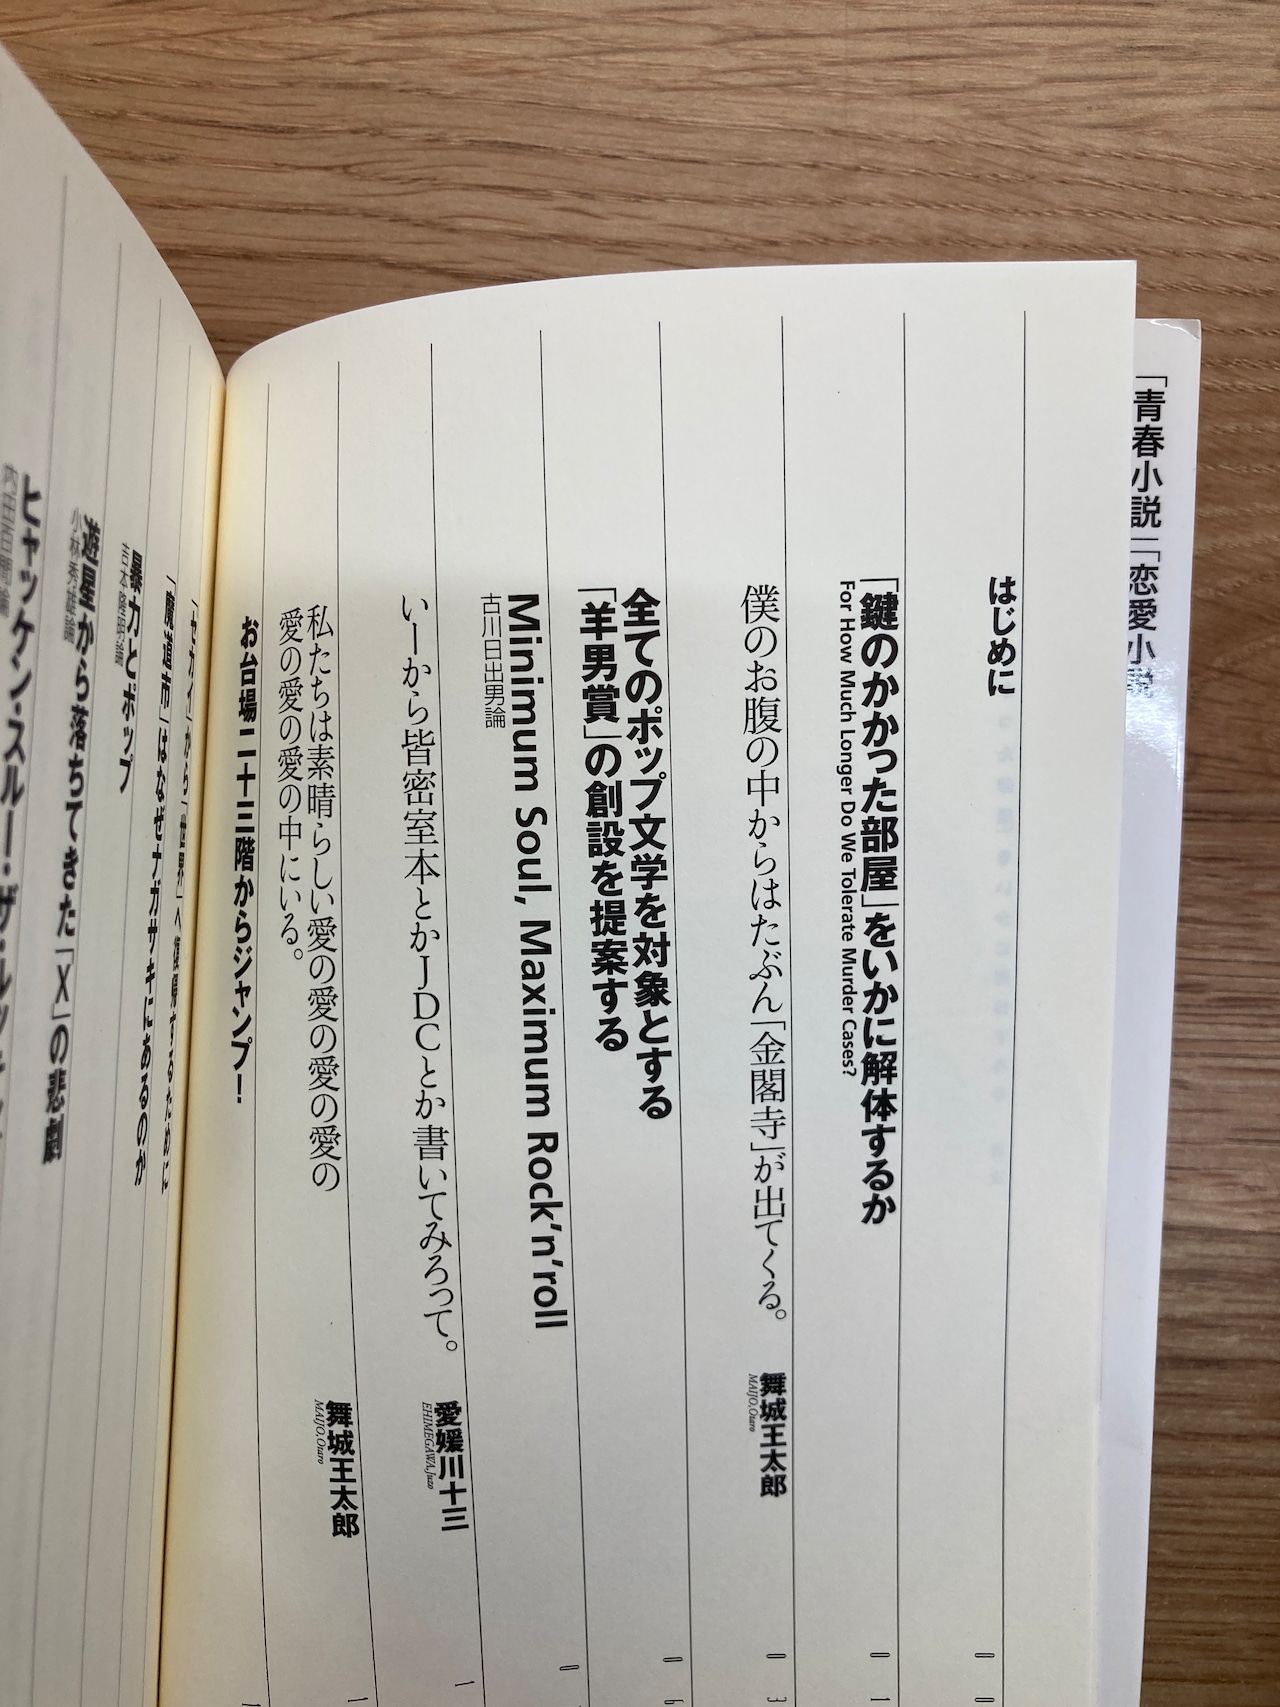 「青春小説」「恋愛小説
はじめに
「鍵のかかった部屋」をいかに解体するか
For How Much Longer Do We Tolerate Murder Cases?
僕のお腹の中からはたぶん「金閣寺」が出てくる。
舞城王太郎
MAIJO,Otaro
全てのポップ文学を対象とする
「羊男賞」の創設を提案する
Minimum Soul, Maximum Rock'n'roll
古川日出男論
いーから皆密室本とかJDCとか書いてみろって。
愛媛川十三
EHIMEGAWA,Juzo
私たちは素晴らしい愛の愛の愛の愛の愛の
愛の愛の愛の愛の中にいる。
舞城王太郎
MAIJO,Otaro
お台場二十三階からジャンプ!
「セカイ」から「世界」へ復帰するために
「魔道市」はなぜナガサキにあるのか
暴力とポップ
吉本隆明論
遊星から落ちてきた「X」の悲劇
小林秀雄論
ヒャッケン・スルー・ザ・ルッキ
内田百閒論